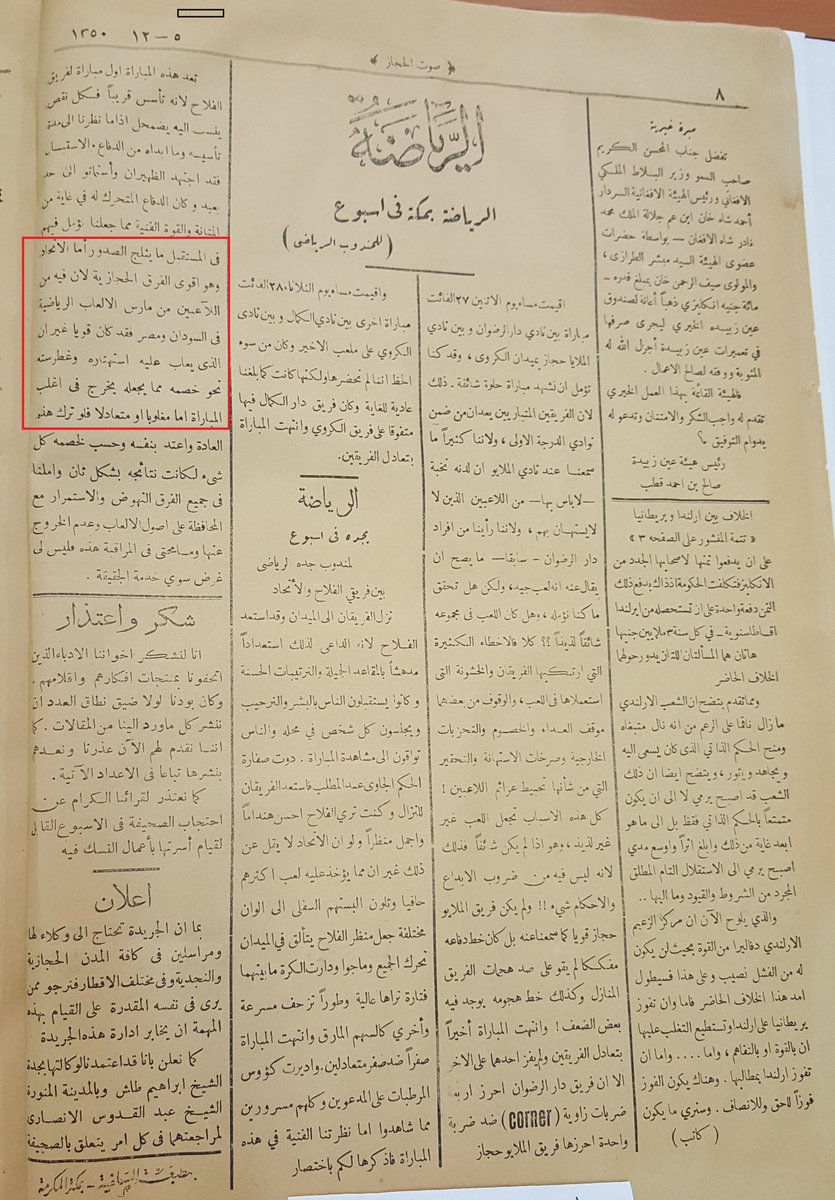 ٨
﴿ صوت الحجاز ﴾
٥ – ١٢ – ١٣٥٠
مبرة خيرية
تفضل جناب المحسن الكريم
صاحب السمو وزير البلاط الملكي
الافغاني ورئيس الهيئة الافغانية السردار
أحمد شاه خان ابن عم جلالة الملك محمد
نادر شاه الافغان — بواسطة حضرات
عضوى الهيئة السيد مبشر الطرازى،
والمولوى سيف الرحمن خان بمبلغ قدره —
مائة جنيه انكليزي ذهباً أعانة لصندوق
عين زبيده الخيري ليجرى صرفها
في تعميرات عين زبيدة أجزل الله له
المثوبة ووفقه لصالح الاعمال.
فالهيئة القائمة بهذا العمل الخيري
تقدم له واجب الشكر والامتنان وتدعو له
بدوام التوفيق
رئيس هيئة عين زبيدة
صالح بن احمد قطب
الخلاف بين ارلندا وبريطانيا
« تتمة المنشور على الصفحه ٣ »
على ان يدفعوا ثمنها لاصحابها الجدد من
الانكليز فتكلفت الحكومة اذ ذاك بدفع ذلك
الثمن دفعة واحدة على أن تستحصله من ايرلندا
اقساطا سنوية – في كل سنة ٣ ملايين جنيها
هاتان هما المسألتان اللتان يدور حولهما
الخلاف الحاضر
ومما تقدم يتضح ان الشعب الارلندي
ما زال ناقماً على الرغم من انه نال متبغاه
ومنح الحكم الذاتي الذى كان يسعى اليه
ويجاهد ويثور، ويتضح ايضا ان ذلك
الشعب قد اصبح يرمي لا الى ان يكون
متمتعاً بالحكم الذاتي فقط بل الى ما هو
ابعد غاية من ذلك وابلغ اثراً واوسع مدي
اصبح يرمى الى الاستقلال التام المطلق
المجرد من الشروط والقيود وما اليها ..
والذي يلوح الآن ان مركز الزعيم
الارلندي دفاليرا من القوة بحيث لن يكون
له من الفشل نصيب وعلى هذا فسيطول
امد هذا الخلاف الحاضر فاما وان تفوز
بريطانيا على ارلندا وتستطيع التغلب عليها
ان بالقوة او بالتفاهم ، واما .... واما ان
تفوز ارلندا بمطالبها . وهناك يكون الفوز
فوزاً للحق وللانصاف . وسنري ما يكون
( كاتب )
الرياضة
الرياضة بمكة فى اسبوع
( للمندوب الرياضى )
اقيمت مساء يوم الاثنين ٢٧ الفائت
مباراة بين نادي دار الرضوان وبين نادى
الملايا حجاز بميدان الكروى ، وقد كنا
نؤمل ان نشهد مباراة حلوة شائقة . ذلك
لان الفريقين المتباريين يعدان من ضمن
نوادي الدرجة الاولى ، ولاننا كثيراً ما
سمعنا عند نادي الملايو ان لدنه نخبة
— لاباس بها — من اللاعبين الذين لا
لايستهان بهم ، ولاننا رأينا من افراد
دار الرضوان – سابقا — ما يصح ان
يقال عنه انه لعب جيد، ولكن هل تحقق
ما كنا نؤمله ، وهل كان اللعب في مجموعه
شائقاً لذيذاً ؟؟ كلا فالاخطاء الكثيرة
التى ارتبكبها الفريقان والخشونة التى
استعملاها فى اللعب، والوقوف من بعضهما
موقف العداء والخصرم والتحزبات
الخارجية وصرخات الاستهانة والتحقير
التي من شأنها تحبيط عزائم اللاعبين !
كل هذه الاسباب تجعل اللعب غير
غير لذيذ ، وهو اذا لم يكن شائقاً فذلك
لانه ليس فيه من ضروب الابداع
والاحكام شيء !! ولم يكن فريق الملايو
حجاز قويا كما سمعنا عنه بل كان خط دفاعه
مفككا لم يقو على صد هجمات الفريق
المنازل وكذلك خط هجومه يوجد فيه
بعض الضعف ! وانتهت المباراة أخيراً
بتعادل الفريقين ولم يفز احدهما على الآخر
الا ان فريق دار الرضوان احرز اربع
ضربات زاوية (corner) ضد ضربة
واحدة احرزها فريق الملايو حجاز
واقيمت مساء يوم الثلاثاء ٢٨ الفائت
مباراة اخرى بين نادي الكمال وبين نادى
الكروي على ملعب الاخير وكان من سوء
الحظ اننا لم نحضرها ولكنها كانت كما بلغنا
عادية للغاية وكان فريق دار الكمال فيها
متفوقا على فريق الكروي وانتهت المباراة
بتعادل الفريقين.
الرياضة
بجده فى اسبوع
لمندوب جده الرياضى
بين فريقي الفلاح والاتحاد
نزل الفريقان الى الميدان وقد استعد
الفلاح لانه الداعى لذلك استعداداً
مدهشاً بالمقاعد الجميلة والترتيبات الحسنة
وكانوا يستقبلون الناس بالبشر والترحيب
ويجلسون كل شخص في محله والناس
تواقون الى مشاهدة المباراة . دوت صفارة
الحكم الجاوى عبد المطلب فاستعد الفريقان
للنزال وكنت تري الفلاح احسن هنداماً
واجمل منظراً ولو ان الاتحاد لا يقل عن
ذلك غير ان مما يؤخذ عليه لعب اكثرهم
حافيا وتلون البستهم السفلى الى الوان
مختلفة جعل منظر الفلاح يتألق في الميدان
تحرك الجميع وماجوا ودارت الكرة ما بينهما
فتارة تراها عالية وطوراً تزحف مسرعة
وأخري كالسهم المارق وانتهت المباراة
صفراً ضد صفر متعادلين. واديرت كؤوس
المرطبات على المدعوين وكلهم مسرورين
مما شاهدوا اما نظرتنا الفنية في هذه
المباراة فاذكرها لكم باختصار
تعد هذه المباراة اول مباراة لفريق
الفلاح لانه تأسس قريباً فكل نقص
ينسب اليه يضمحل اذا ما نظرنا الى مدة
تأسيسه وما ابداه من الدفاع. الاستبسال
فقد اجتهد الظهيران وأستماتو الى حد
بعيد وكان الدفاع المتحرك له في غاية من
المتانة والقوة الفنية مما جعلنا نؤمل فيهم
فى المستقبل ما يثلج الصدور أما الاتحاد
وهو اقوى الفرق الحجازية لان فيه من
اللآعبين من مارس الالعاب الرياضية
فى السودان ومصر فقد كان قويا غير ان
الذى يعاب عليه استهتاره وغطرسته
نحو خصمه مما يجعله يخرج فى اغلب
المباراة اما مغلوبا او متعادلا فلو ترك هذه
العادة واعتد بنفسه وحسب لخصمه كل
شىء لكانت نتائجه بشكل ثان واملنا
فى جميع الفرق النهوض والاستمرار مع
المحافظة على اصول الالعاب وعدم الخروج
عنها ومسامحتى فى المراقبة هذه فليس لى
غرض سوي خدمة الحقيقة .
شكر واعتذار
انا لنشكر اخواننا الادباء الذين
اتحفونا بمنتجات افكارهم واقلامهم .
وكان بودنا لولا ضيق نطاق العدد ان
ننشر كل ماورد الينا من المقالات . كما
اننا نقدم لهم الآن عذرنا ونعدهم
بنشرها تباعا فى الاعداد الآتية .
كما نعتذر لقرائنا الكرام عن
احتجاب الصحيفة فى الاسبوع القابل
لقيام أسرتها بأعمال النسك فيه
اعلان
بما ان الجريدة تحتاج الى وكلاء لها
ومراسلين فى كافة المدن الحجازية
والنجدية وفى مختلف الاقطار فنرجو ممن
يرى فى نفسه المقدرة على القيام بهذه
المهمة ان يخابر ادارة هذه الجريدة
كما نعلن بانا قد اعتمدنا لوكالتها بجدة
الشيخ ابراهيم طاش وبالمدينة المنورة
الشيخ عبد القدوس الانصارى
لمراجعتهما فى كل امر يتعلق بالصحيفة
بمكة المكرمة